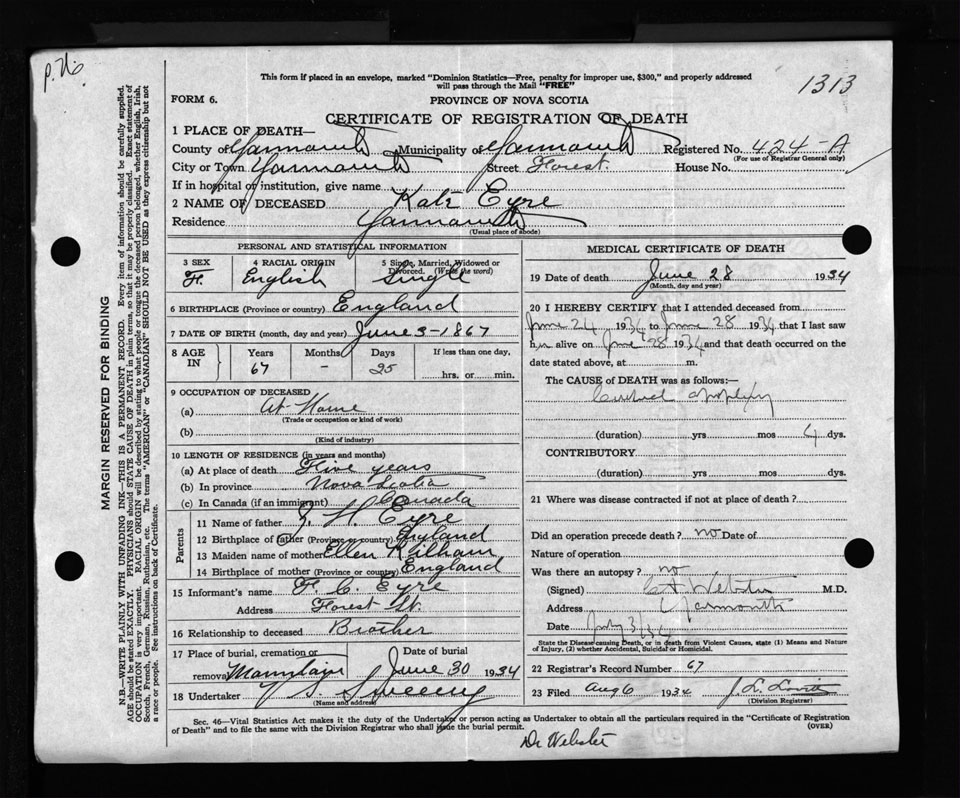 1313
This form if placed in an envelope, marked "Dominion Statistics—Free, penalty for improper use, $300," and properly addressed
will pass through the Mail "FREE"
FORM 6.
PROVINCE OF NOVA SCOTIA
CERTIFICATE OF REGISTRATION OF DEATH
1 PLACE OF DEATH—
County of Yarmouth Municipality of Yarmouth Registered No. 424-A
(For use of Registrar General only)
City or Town Yarmouth Street Forest. House No.
If in hospital or institution, give name
2 NAME OF DECEASED Kate Eyre
Residence Yarmouth
(Usual place of abode)
MARGIN RESERVED FOR BINDING
N.B.—WRITE PLAINLY WITH UNFADING INK—THIS IS A PERMANENT RECORD. Every item of information should be carefully supplied.
AGE should be stated EXACTLY. PHYSICIANS should STATE CAUSE OF DEATH in plain terms, so that it may be properly classified. Exact statement of
OCCUPATION is very important. RACIAL ORIGIN will be described by stating to what people or tongue the deceased person belonged, whether English, Irish,
Scotch, French, German, Russian, Ruthenian, etc. The terms "AMERICAN" or "CANADIAN" SHOULD NOT BE USED as they express citizenship but not
a race or people. See instructions on back of Certificate.
PERSONAL AND STATISTICAL INFORMATION
3 SEX 4 RACIAL ORIGIN 5 Single, Married, Widowed or
Divorced. (Write the word)
F. English Single
6 BIRTHPLACE (Province or country) England
7 DATE OF BIRTH (month, day and year) June 3-1867
8 AGE IN Years Months Days If less than one day,
67 - 25 hrs. or min.
9 OCCUPATION OF DECEASED
(a) At Home
(Trade or occupation or kind of work)
(b)
(Kind of industry)
10 LENGTH OF RESIDENCE (in years and months)
(a) At place of death Five years
(b) In province Nova Scotia
(c) In Canada (if an immigrant) Canada
Parents
11 Name of father H. Eyre
12 Birthplace of father (Province or country) England
13 Maiden name of mother Ellen Kilham
14 Birthplace of mother (Province or country) England
15 Informant's name F. C. Eyre
Address Forest St.
16 Relationship to deceased Brother
17 Place of burial, cremation or Date of burial
removal Mountain June 30 1934
18 Undertaker V S Sweeny
(Name and address)
MEDICAL CERTIFICATE OF DEATH
19 Date of death June 28 1934
(Month, day and year)
20 I HEREBY CERTIFY that I attended deceased from
June 24 1934 to June 28 1934 that I last saw
her alive on June 28 1934 and that death occurred on
date stated above, at m.
The CAUSE of DEATH was as follows:—
Cerebral apoplexy
(duration) yrs mos 4 dys.
CONTRIBUTORY
(duration) yrs mos dys.
21 Where was disease contracted if not at place of death?
Did an operation precede death? no Date of
Nature of operation
Was there an autopsy? no
(Signed) Webster M.D.
Address Yarmouth
Date July 3/34
State the Disease causing Death, or in death from Violent Causes, state (1) Means and Nature
of Injury, (2) whether Accidental, Suicidal or Homicidal.
22 Registrar's Record Number 67
23 Filed Aug 6 1934 J. L. Lovitt
(Division Registrar)
Sec. 46—Vital Statistics Act makes it the duty of the Undertaker or person acting as Undertaker to obtain all the particulars required in the "Certificate of Registration
of Death" and to file the same with the Division Registrar who shall issue the burial permit. (OVER)
Dr Webster